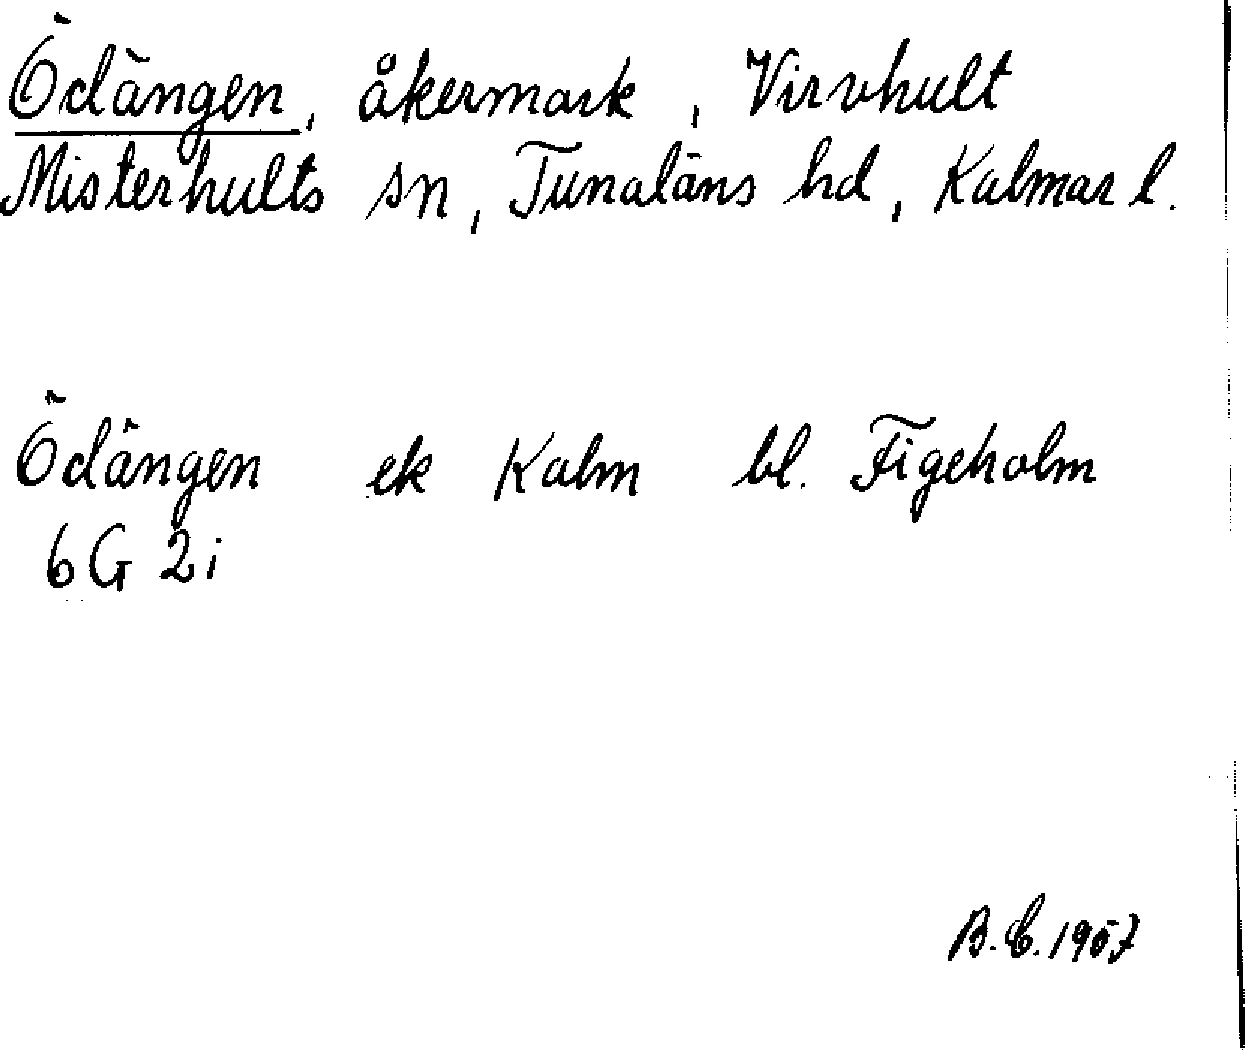 Ödängen, åkermark, Virvhult
Misterhults sn, Tunaläns hd, Kalmar l.
Ödängen ek Kalm bl. Figeholm
6 G 2 i
B. C. 1957